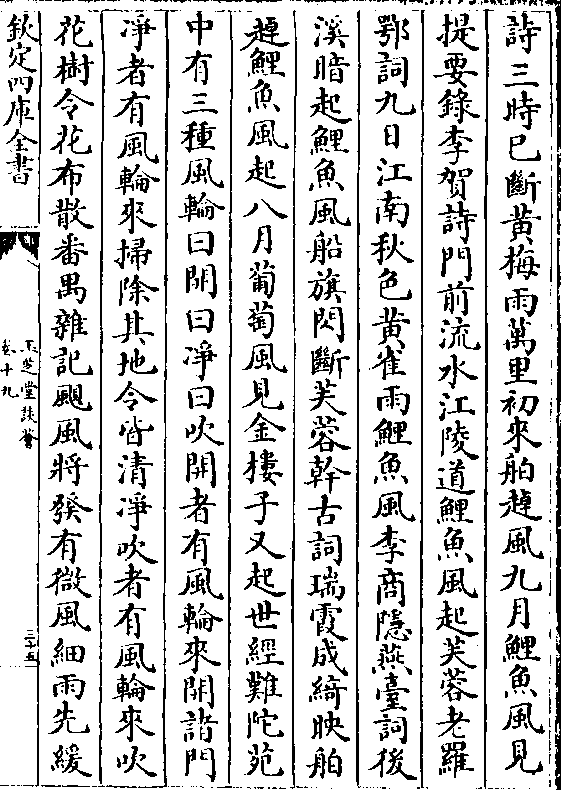 詩三時已斷黃梅雨萬里初來舶趠風九月鯉魚風見
提要錄李賀詩門前流水江陵道鯉魚風起芙蓉老羅
鄂詞九日江南秋色黃雀雨鯉魚風李商隱燕臺詞後
溪暗起鯉魚風船旗閃斷芙蓉幹古詞瑞霞成綺映舶
趠鯉魚風起八月葡萄風見金樓子又起世經難陀苑
中有三種風輪曰開曰凈曰吹開者有風輪來開諸門
凈者有風輪來掃除其地令皆清凈吹者有風輪來吹
花樹令花布散番禺雜記颶風將發有微風細雨先緩
欽定四庫全書
玉芝堂談薈
卷十九
三十五